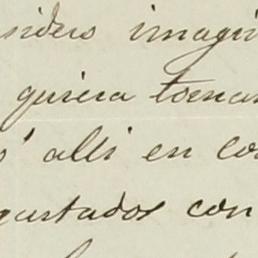 sidero imagin
quiera tomar
s' alli en co
gustados con